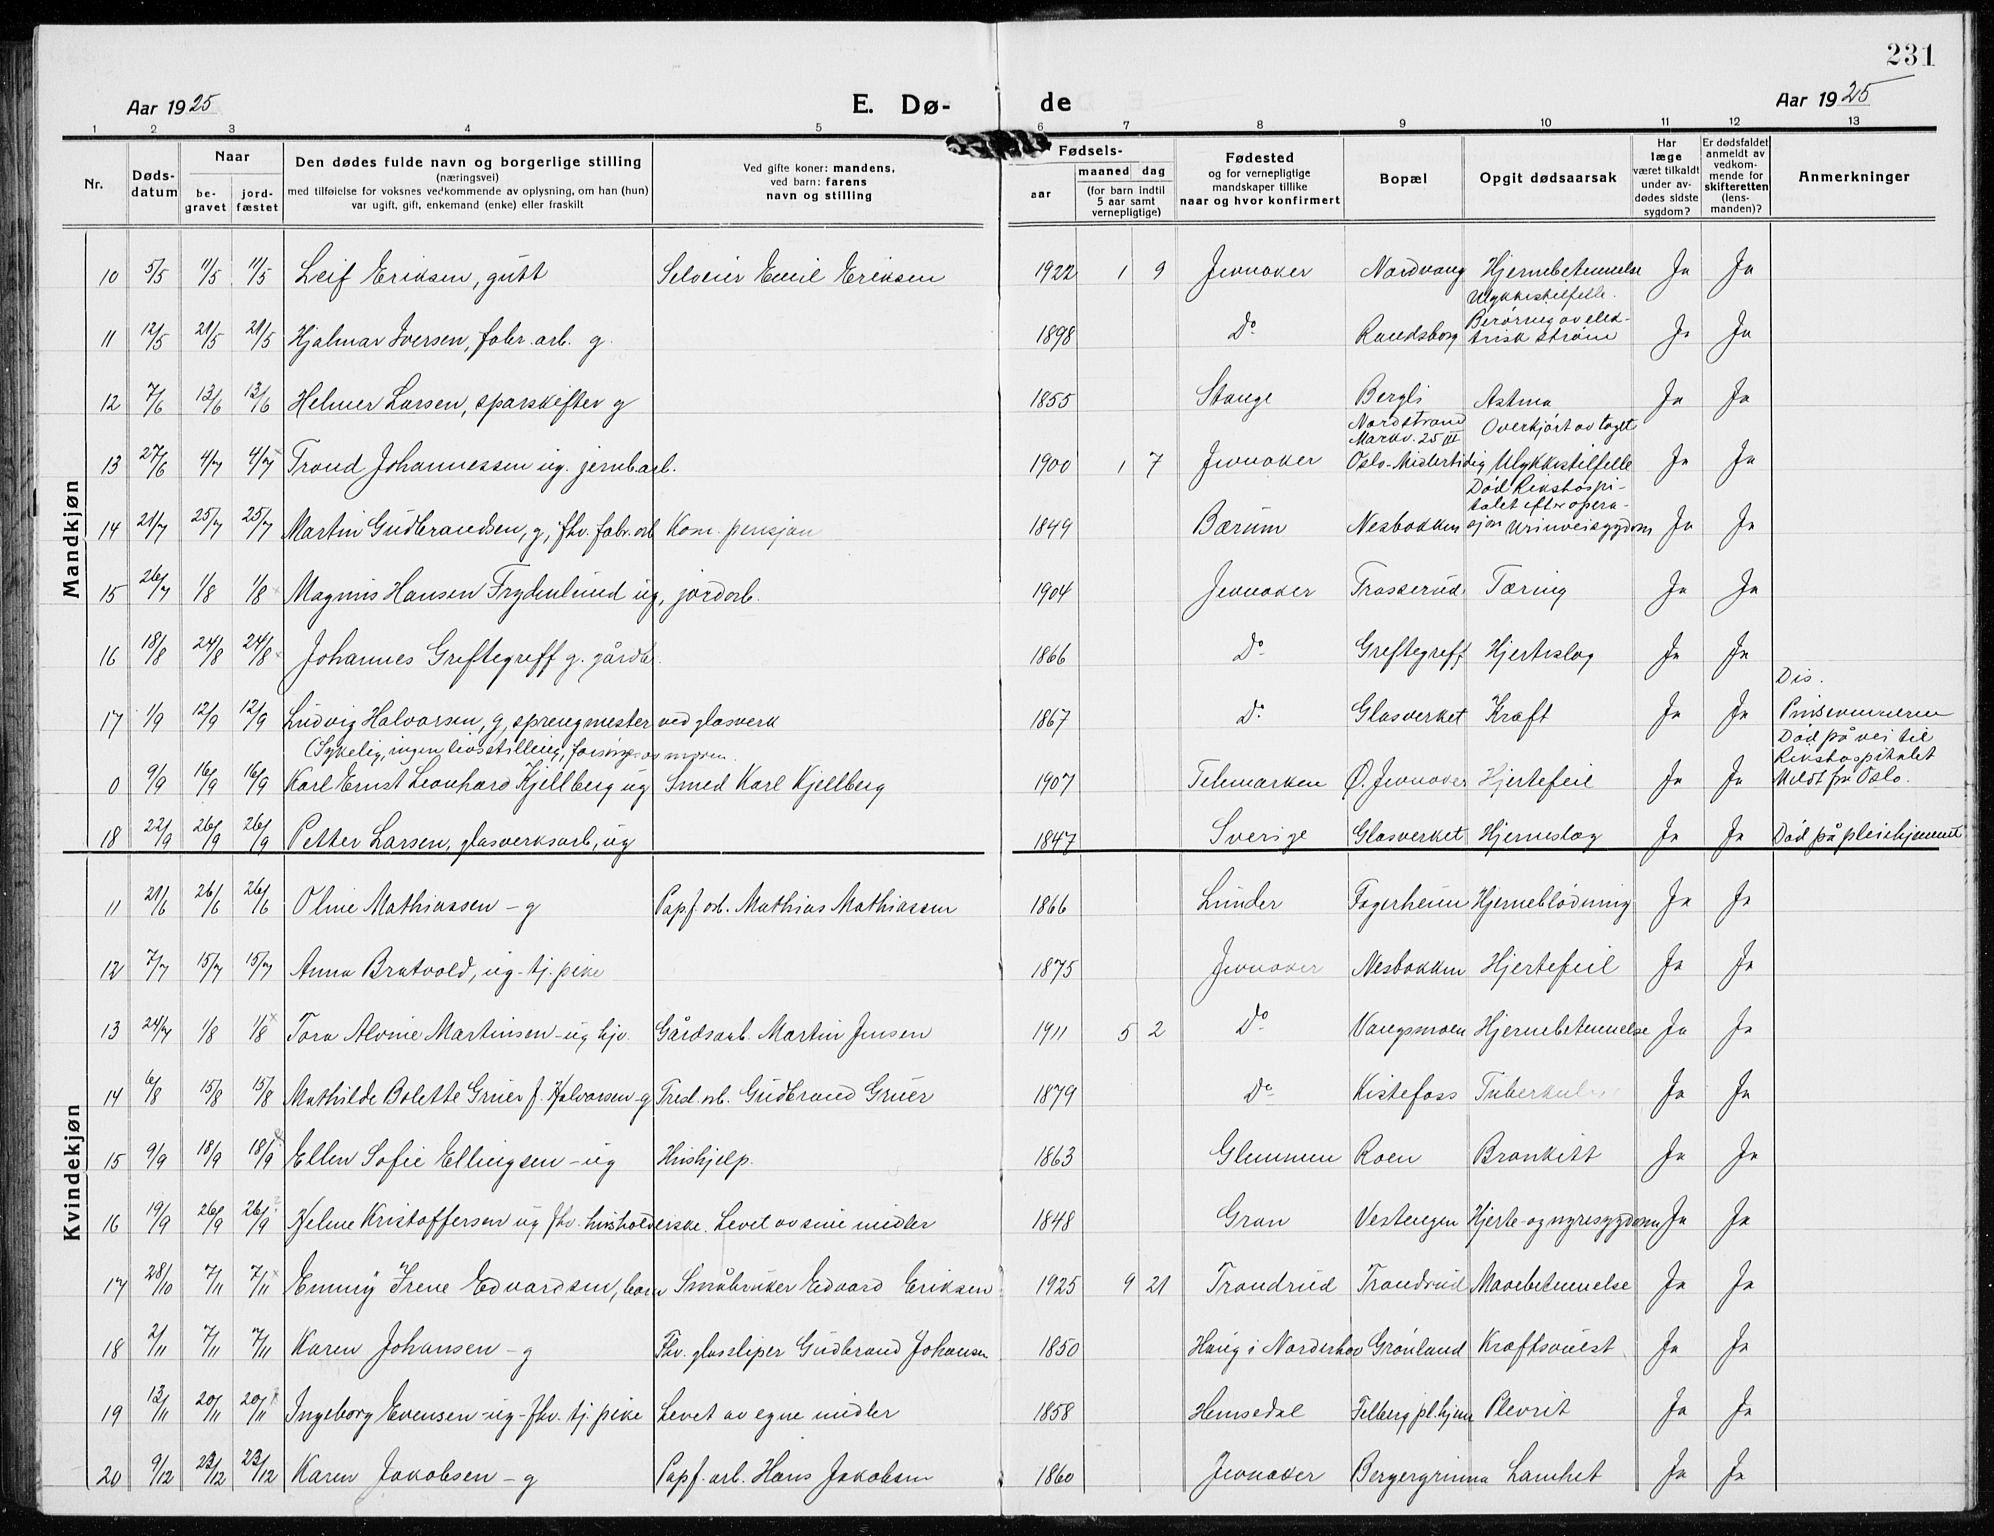 231
Aar 1925 E. Dø- de Aar 1925
1 2 3 4 5 6 7 8 9 10 11 12 13
Nr. Døds-datum Naar be-gravet jord-fæstet Den dødes fulde navn og borgerlige stilling (næringsvei) med tilføielse for voksnes vedkommende av oplysning, om han (hun) var ugift, gift, enkemand (enke) eller fraskilt Ved gifte koner: mandens, ved barn: farens navn og stilling Fødsels- aar maaned dag (for barn indtil 5 aar samt vernepligtige) Fødested og for vernepligtige mandskaper tillike naar og hvor konfirmert Bopæl Opgit dødsaarsak Har læge været tilkaldt under av-dødes sidste sygdom? Er dødsfaldet anmeldt av vedkom-mende for skifteretten (lens-manden)? Anmerkninger
Mandkjøn
10 5/5 11/5 11/5 Leif Eriksen, gutt Selveier Emil Eriksen 1922 1 9 Jevnaker Nordvang Hjernebetennelse Ja Ja
11 12/5 21/5 21/5 Hjalmar Iversen, fabr. arb. g. 1898 Do Randsborg Ulykkestilfelle. Berøring av elek-trisk strøm Ja Ja
12 7/6 13/6 13/6 Helmer Larsen, sporskifter g 1855 Stange Bergli Astma Ja Ja
13 27/6 4/7 4/7 Trond Johannessen ug. jernb.arb. 1900 1 7 Jevnaker Nordstrand Markv. 25 III Oslo-Midlertidig Overkjørt av toget Ulykkestilfelle Ja Ja
14 21/7 25/7 25/7 Martin Gudbrandsen, g, fhv. fabr. arb Kom. pensjon 1849 Bærum Nesbakken Død Rikshospi-talet efter opera-sjon Urinveisygdom Ja Ja
15 26/7 1/8 1/8 Magnus Hansen Frydenlund ug, jordarb. 1904 Jevnaker Trosserud Tæring Ja Ja
16 18/8 24/8 24/8 Johannes Greftegreff g. gårdb. 1866 Do Greftegreff Hjerteslag Ja Ja
17 1/9 12/9 12/9 Ludvig Halvorsen, g, sprengmester ved glasverk 1867 Do Glasverket Kræft Ja Ja Dis. Pinsevennerne
(Sykelig, ingen livsstilling, forsørges av moren.
0 9/9 16/9 16/9 Karl Ernst Leonhard Kjellberg ug Smed Karl Kjellberg 1907 Telemarken Ø. Jevnaker Hjertefeil Ja Ja Død på vei til Rikshospitalet Meldt fra Oslo.
18 22/9 26/9 26/9 Petter Larsen, glasverksarb, ug 1847 Sverige Glasverket Hjerneslag Ja Ja Død på pleiehjemmet
Kvindekjøn
11 21/6 26/6 26/6 Oline Mathiassen - g Papf. arb. Mathias Mathiassen 1866 Lunder Fagerheim Hjerneblødning Ja Ja
12 7/7 15/7 15/7 Anna Bratvold, ug - tj. pike 1875 Jevnaker Nesbakken Hjertefeil Ja Ja
13 24/7 1/8 1/8 Tora Alvine Martinsen - ug hjv. Gårdsarb. Martin Jensen 1911 5 2 Do Vangsmoen Hjernebetennelse Ja Ja
14 6/8 15/8 15/8 Mathilde Bolette Gruer f. Halvorsen - g Tresl. arb. Gudbrand Gruer 1879 Do Kistefoss Tuberkulose Ja Ja
15 9/9 18/9 18/9 Ellen Sofie Ellingsen - ug Hushjelp. 1863 Glemmen Roen Bronkitt Ja Ja
16 19/9 26/9 26/9 Helene Kristoffersen ug fhv. husholderske. Levet av sine midler 1848 Gran Vestengen Hjerte- og nyresygdom Ja Ja
17 28/10 7/11 7/11 Emmy Irene Edvardsen, barn Småbruker Edvard Eriksen 1925 9 21 Trondrud Trondrud Mavebetennelse Ja Ja
18 2/11 7/11 7/11 Karen Johansen - g Fhv. glassliper Gudbrand Johansen 1850 Haug i Norderhov Grønland Kræftsvulst Ja Ja
19 13/11 20/11 20/11 Ingeborg Evensen - ug - fhv. tj. pike Levet av egne midler 1858 Hemsedal Felberg pl.hjem Plevrit Ja Ja
20 9/12 23/12 23/12 Karen Jakobsen - g Papf. arb. Hans Jakobsen 1860 Jevnaker Bergergrinna Lamhet Ja Ja